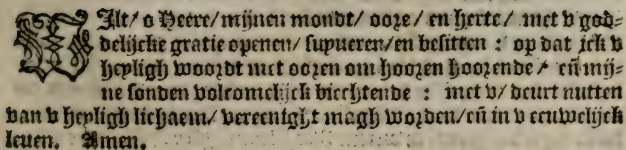 WIlt/ o Heere/ mijnen mondt/ ooze/ en herte/ met v god-
delijcke gratie openen/ supueren/ en besitten : op dat ick v
heyligh woordt met ooren om hooren hoorende / eñ mij-
ne sonden volcomelijck biechtende : met v/ deurt nutten
van v heyligh lichaem/ vereenight magh worden/ eñ in v eeuwelijck
leuen. Amen.